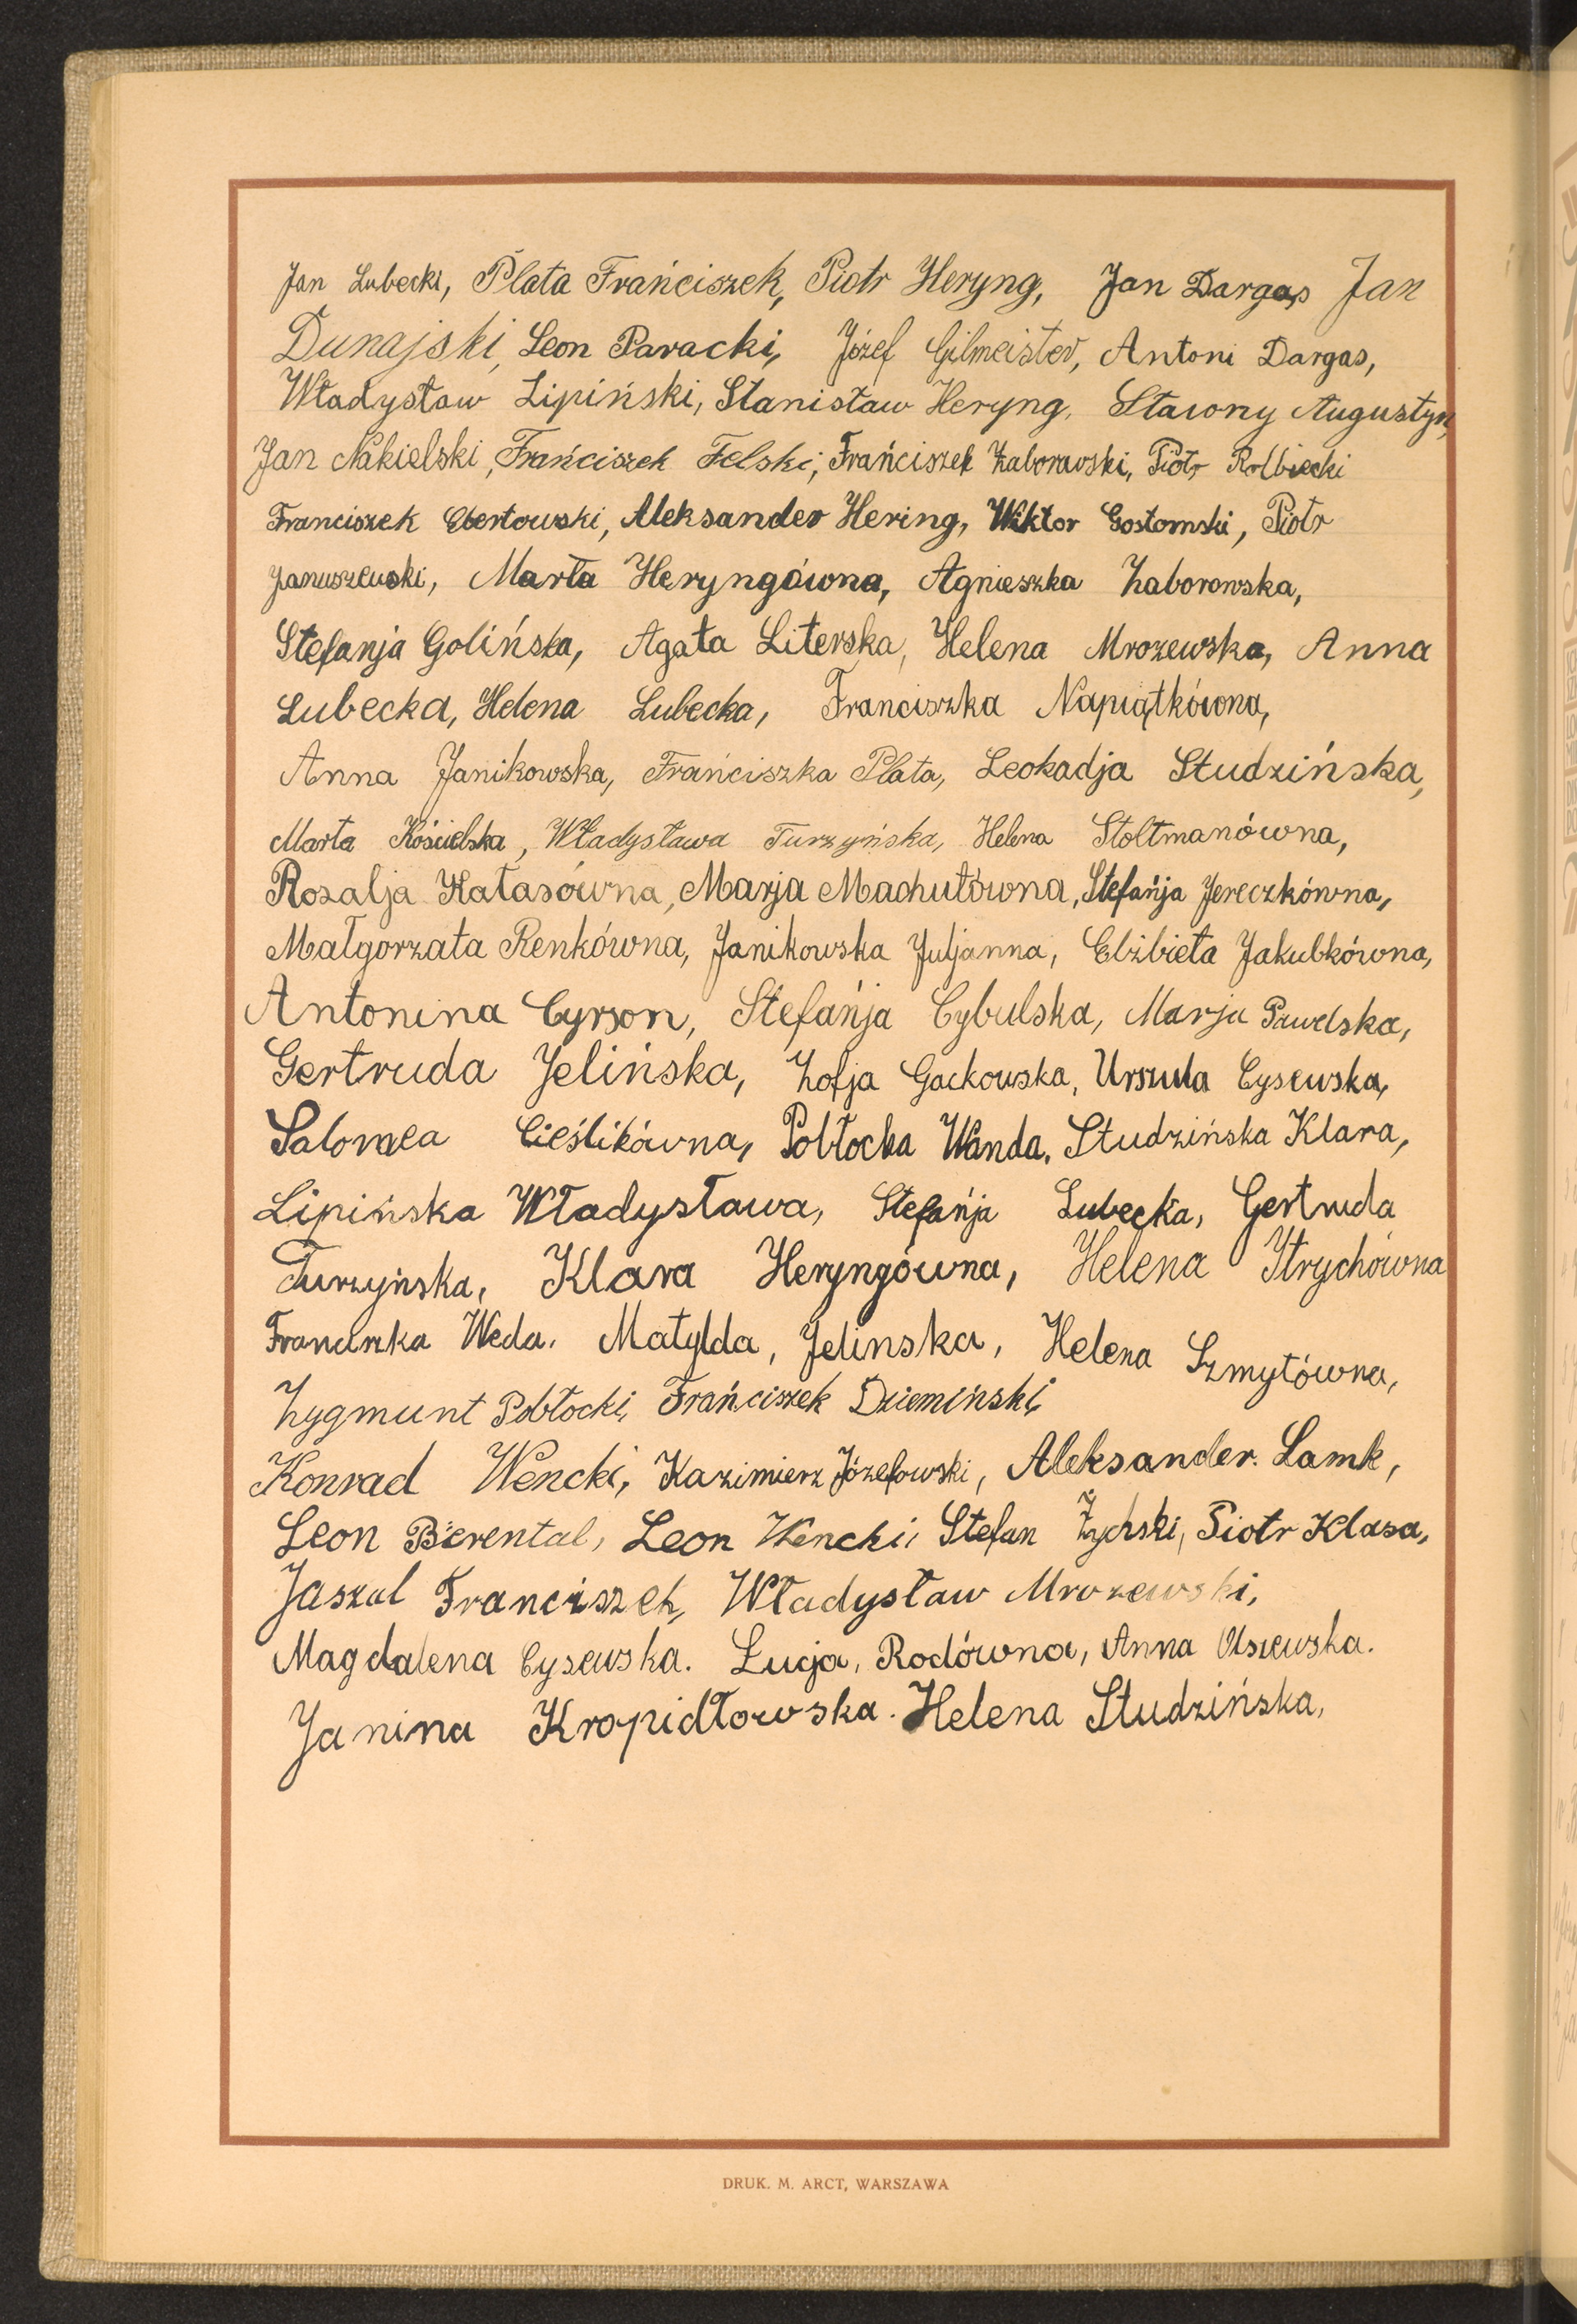 Jan Lubecki, Plata Frańciszek, Piotr Heryng, Jan Dargas Jan
Dunajski, Leon Paracki, Józef Gilmeister, Antoni Dargas,
Władysław Lipiński, Stanisław Heryng, Stawny Augustyn,
Jan Nakielski, Frańciszek Felski, Frańciszek Zaborowski, Piotr Rolbiecki
Franciszek Ebertowski, Aleksander Hering, Wiktor Gostomski, Piotr
Januszewski, Marta Heryngówna, Agnieszka Zaborowska,
Stefanja Golińska, Agata Literska, Helena Mrozewska, Anna
Lubecka, Helena Lubecka, Franciszka Napiątkówna,
Anna Janikowska, Frańciszka Plata, Leokadja Studzińska,
Marta Kościelska, Władysława Turzyńska, Helena Stoltmanówna,
Rozalja Kałasówna, Marja Machutówna, Stefańja Jereczkówna,
Małgorzata Renkówna, Janikowska Juljanna, Elżbieta Jakubkówna,
Antonina Cyrson, Stefańja Cybulska, Marja Pawelska,
Gertruda Jelińska, Zofja Gackowska, Urszula Cysewska,
Salomea Cieślikówna, Pobłocka Wanda, Studzińska Klara,
Lipińska Władysława, Stefańja Lubecka, Gertruda
Turzyńska, Klara Heryngówna, Helena Strychówna
Franciszka Weda. Matylda, Jelinska, Helena Szmytówna,
Zygmunt Pobłocki, Frańciszek Dziemiński,
Konrad Wencki, Kazimierz Józefowski, Aleksander. Lamk,
Leon Bierental, Leon Wencki, Stefan Żychski, Piotr Klasa,
Jaszul Franciszek, Władysław Mrozewski,
Magdalena Cysewska. Lucja, Rodówna, Anna Osiewska.
Janina Kropidłowska. Helena Studzińska,
DRUK. M. ARCT, WARSZAWA